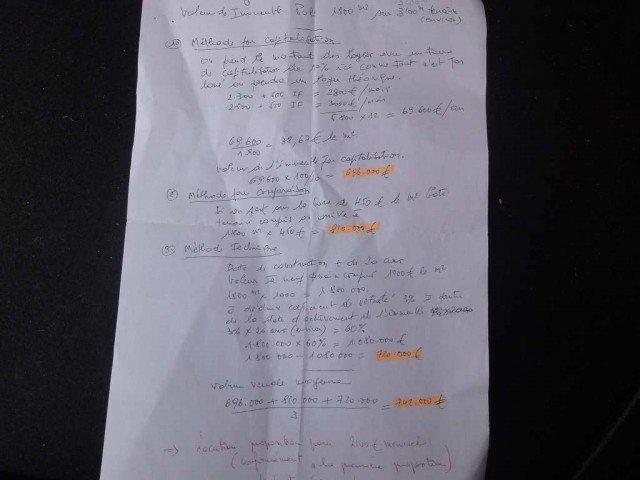 Valeur de l'immeuble 1800 m² sur 3'100 m
1) Méthode par capitalisation
On prend le montant des loyers avec un taux
de capitalisation de 10%
loué on prendra un loyer théorique.
2.300 + 500 = 2800 € / mois
2500 + 500 = 3000 € / mois
5 800 x 12 = 69 600 € / an
69 600 / 1 800 = 38,67 € le m²
Valeur de l'immeuble par capitalisation.
69 600 x 100/10 = 696.000 €
2) Méthode par Comparaison
sur la base de 450 € le m² bâti
terrain compris on arrive à
1800 m² x 450 € = 810.000 €
3) Méthode Technique
Date de construction + de 20 ans
Valeur à neuf 1000 € le m²
1800 m² x 1000 = 1 800.000.
à déduire coefficient de vétusté 3%
de la date d'achèvement de l'immeuble
3% x 20 ans (environ) = 60%
1.800 000 x 60% = 1 080 000 €
1 800 000 - 1 080 000 = 720.000 €
Valeur vénale moyenne
696.000 + 810.000 + 720.000 / 3 = 742.000 €
=> Location proposition pour € mensuel
(conformément à la première proposition)